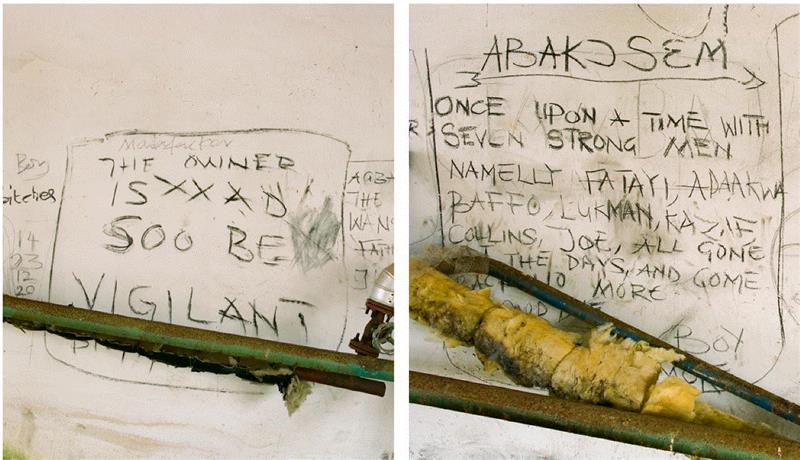 Boy
THE OWNER
IS XXXAD
SOO BE
VIGILANT
14
23
12
20
THE
ABAKƆSEM
ONCE UPON A TIME WITH
SEVEN STRONG MEN
NAMELLY FATAYI, ADAAKWA
BAFFO, LUKMAN, KAZIF,
COLLINS, JOE, ALL GONE
THE DAYS, AND COME
NO MORE
BOY